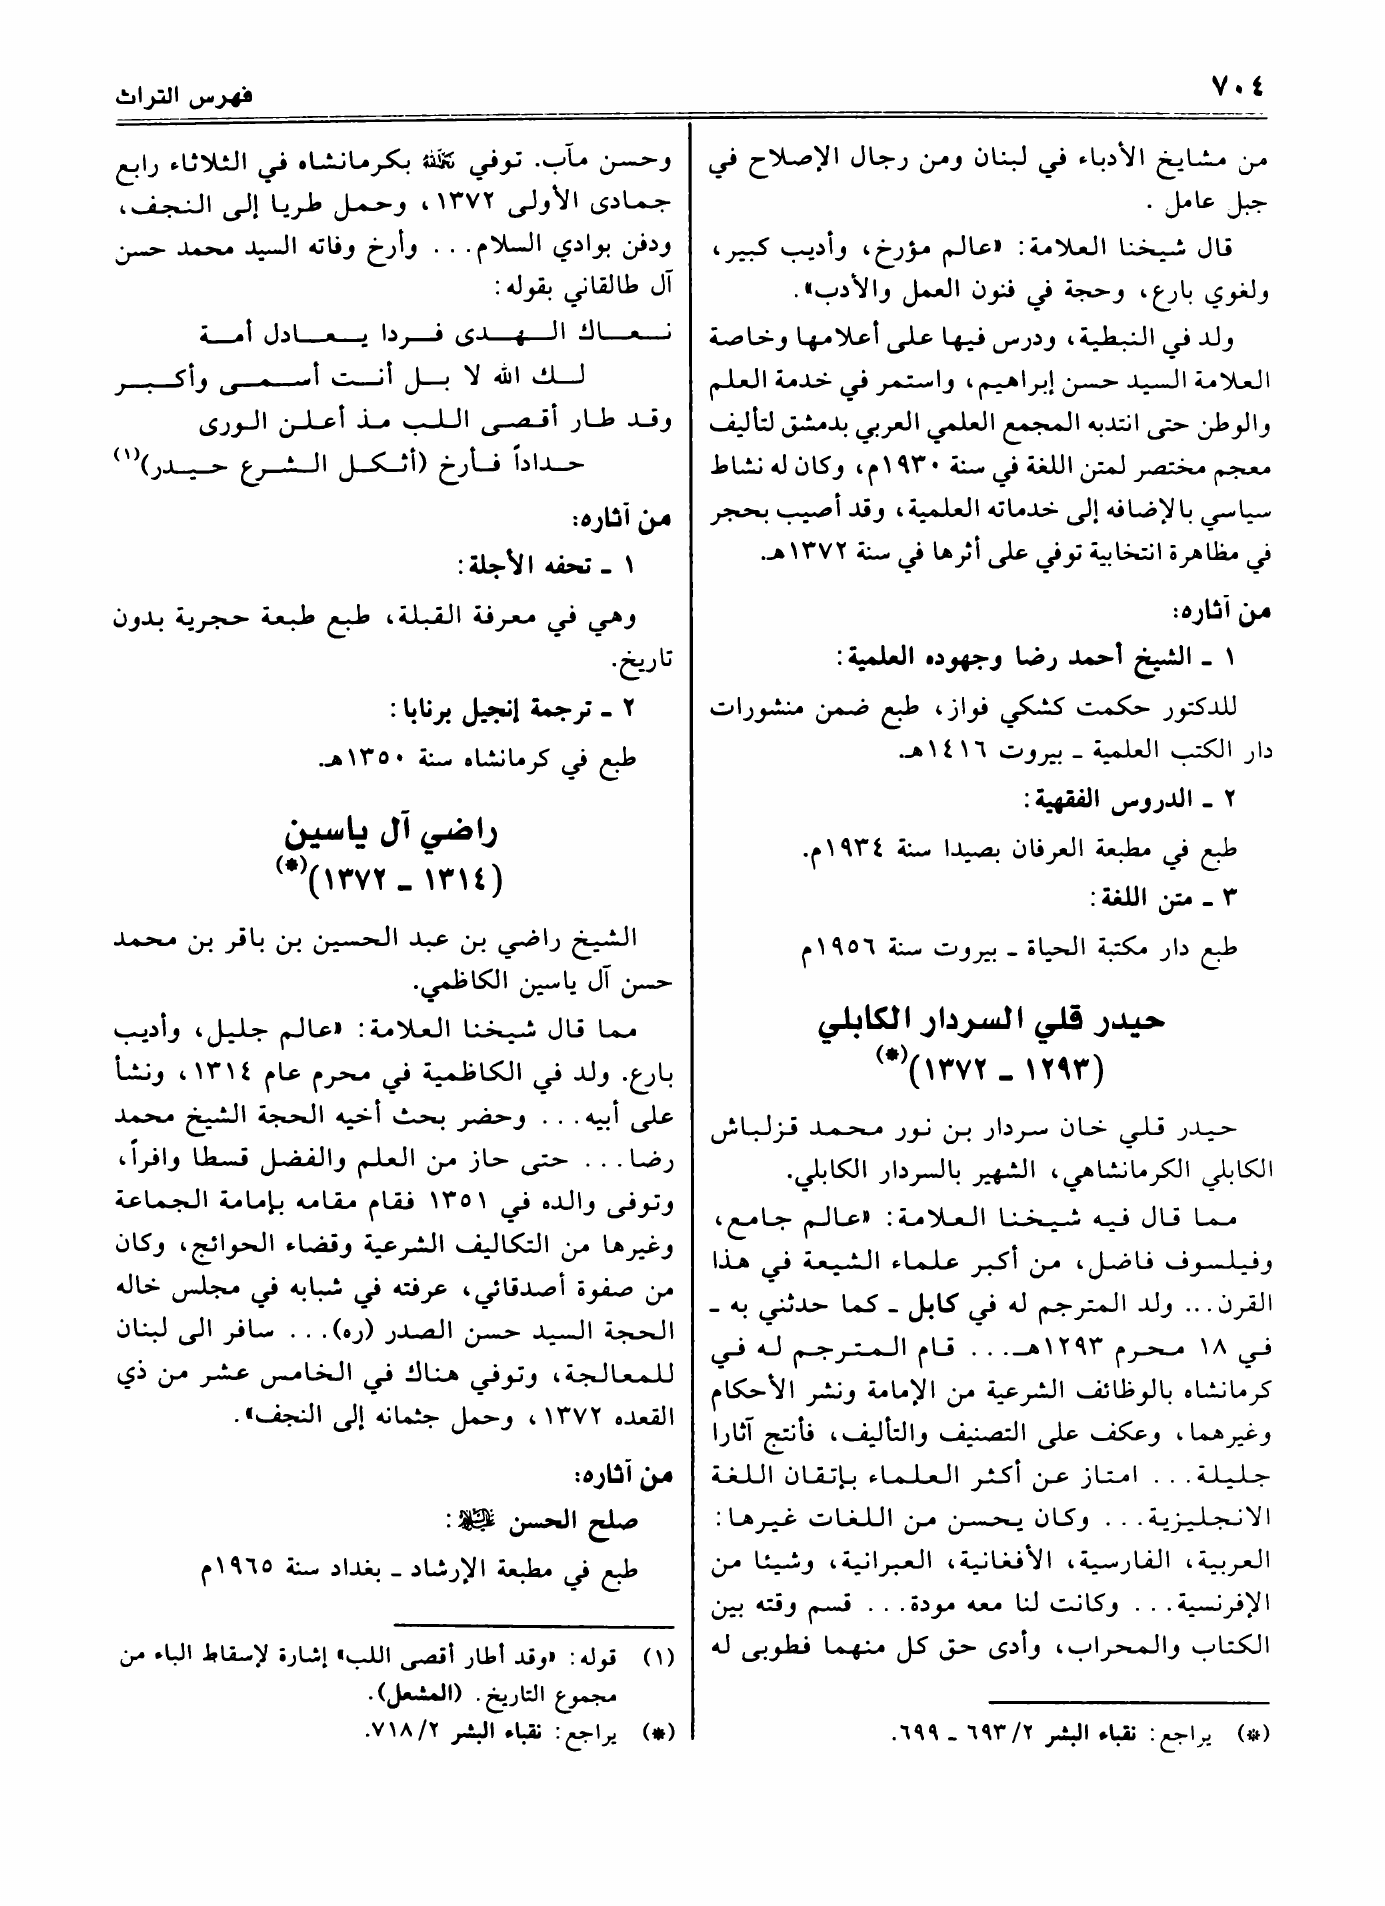 ٧٠٤
فهرس التراث
من مشايخ الأدباء في لبنان ومن رجال الإصلاح في
جبل عامل .
قال شيخنا العلامة: «عالم مؤرخ، وأديب كبير،
ولغوي بارع، وحجة في فنون العمل والأدب».
ولد في النبطية، ودرس فيها على أعلامها وخاصة
العلامة السيد حسن إبراهيم، واستمر في خدمة العلم
والوطن حتى انتدبه المجمع العلمي العربي بدمشق لتأليف
معجم مختصر لمتن اللغة في سنة ١٩٣٠م، وكان له نشاط
سياسي بالإضافه إلى خدماته العلمية، وقد أصيب بحجر
في مظاهرة انتخابية توفي على أثرها في سنة ١٣٧٢هـ.
من آثاره:
١ ـ الشيخ أحمد رضا وجهوده العلمية:
للدكتور حكمت كشكي فواز، طبع ضمن منشورات
دار الكتب العلمية ـ بيروت ١٤١٦هـ.
٢ ـ الدروس الفقهية:
طبع في مطبعة العرفان بصيدا سنة ١٩٣٤م.
٣ ـ متن اللغة:
طبع دار مكتبة الحياة ـ بيروت سنة ١٩٥٦م
حيدر قلي السردار الكابلي
(١٢٩٣ ـ ١٣٧٢)(*)
حيدر قلي خان سردار بن نور محمد قزلباش
الكابلي الكرمانشاهي، الشهير بالسردار الكابلي.
مما قال فيه شيخنا العلامة: «عالم جامع،
وفيلسوف فاضل، من أكبر علماء الشيعة في هذا
القرن... ولد المترجم له في كابل ـ كما حدثني به ـ
في ١٨ محرم ١٢٩٣هـ... قام المترجم له في
كرمانشاه بالوظائف الشرعية من الإمامة ونشر الأحكام
وغيرهما، وعكف على التصنيف والتأليف، فأنتج آثارا
جليلة... امتاز عن أكثر العلماء بإتقان اللغة
الانجليزية... وكان يحسن من اللغات غيرها:
العربية، الفارسية، الأفغانية، العبرانية، وشيئا من
الإفرنسية... وكانت لنا معه مودة... قسم وقته بين
الكتاب والمحراب، وأدى حق كل منهما فطوبى له
(*) يراجع: نقباء البشر ٢/ ٦٩٣ ـ ٦٩٩.
وحسن مآب. توفي رحمه الله بكرمانشاه في الثلاثاء رابع
جمادى الأولى ١٣٧٢، وحمل طريا إلى النجف،
ودفن بوادي السلام... وأرخ وفاته السيد محمد حسن
آل طالقاني بقوله:
نعاك الهدى فردا يعادل أمة
لك الله لا بل أنت أسمى وأكبر
وقد طار أقصى اللب مذ أعلن الورى
حداداً فأرخ (أثكل الشرع حيدر)(١)
من آثاره:
١ ـ تحفه الأجلة:
وهي في معرفة القبلة، طبع طبعة حجرية بدون
تاريخ.
٢ ـ ترجمة إنجيل برنابا:
طبع في كرمانشاه سنة ١٣٥٠هـ.
راضي آل ياسين
(١٣١٤ ـ ١٣٧٢)(*)
الشيخ راضي بن عبد الحسين بن باقر بن محمد
حسن آل ياسين الكاظمي.
مما قال شيخنا العلامة: «عالم جليل، وأديب
بارع. ولد في الكاظمية في محرم عام ١٣١٤، ونشأ
على أبيه... وحضر بحث أخيه الحجة الشيخ محمد
رضا... حتى حاز من العلم والفضل قسطا وافراً،
وتوفى والده في ١٣٥١ فقام مقامه بإمامة الجماعة
وغيرها من التكاليف الشرعية وقضاء الحوائج، وكان
من صفوة أصدقائي، عرفته في شبابه في مجلس خاله
الحجة السيد حسن الصدر (ره)... سافر الى لبنان
للمعالجة، وتوفي هناك في الخامس عشر من ذي
القعده ١٣٧٢، وحمل جثمانه إلى النجف».
من آثاره:
صلح الحسن عليه السلام:
طبع في مطبعة الإرشاد ـ بغداد سنة ١٩٦٥م
(١) قوله: «وقد أطار أقصى اللب» إشارة لإسقاط الباء من
مجموع التاريخ. (المشعل).
(*) يراجع: نقباء البشر ٢/ ٧١٨.